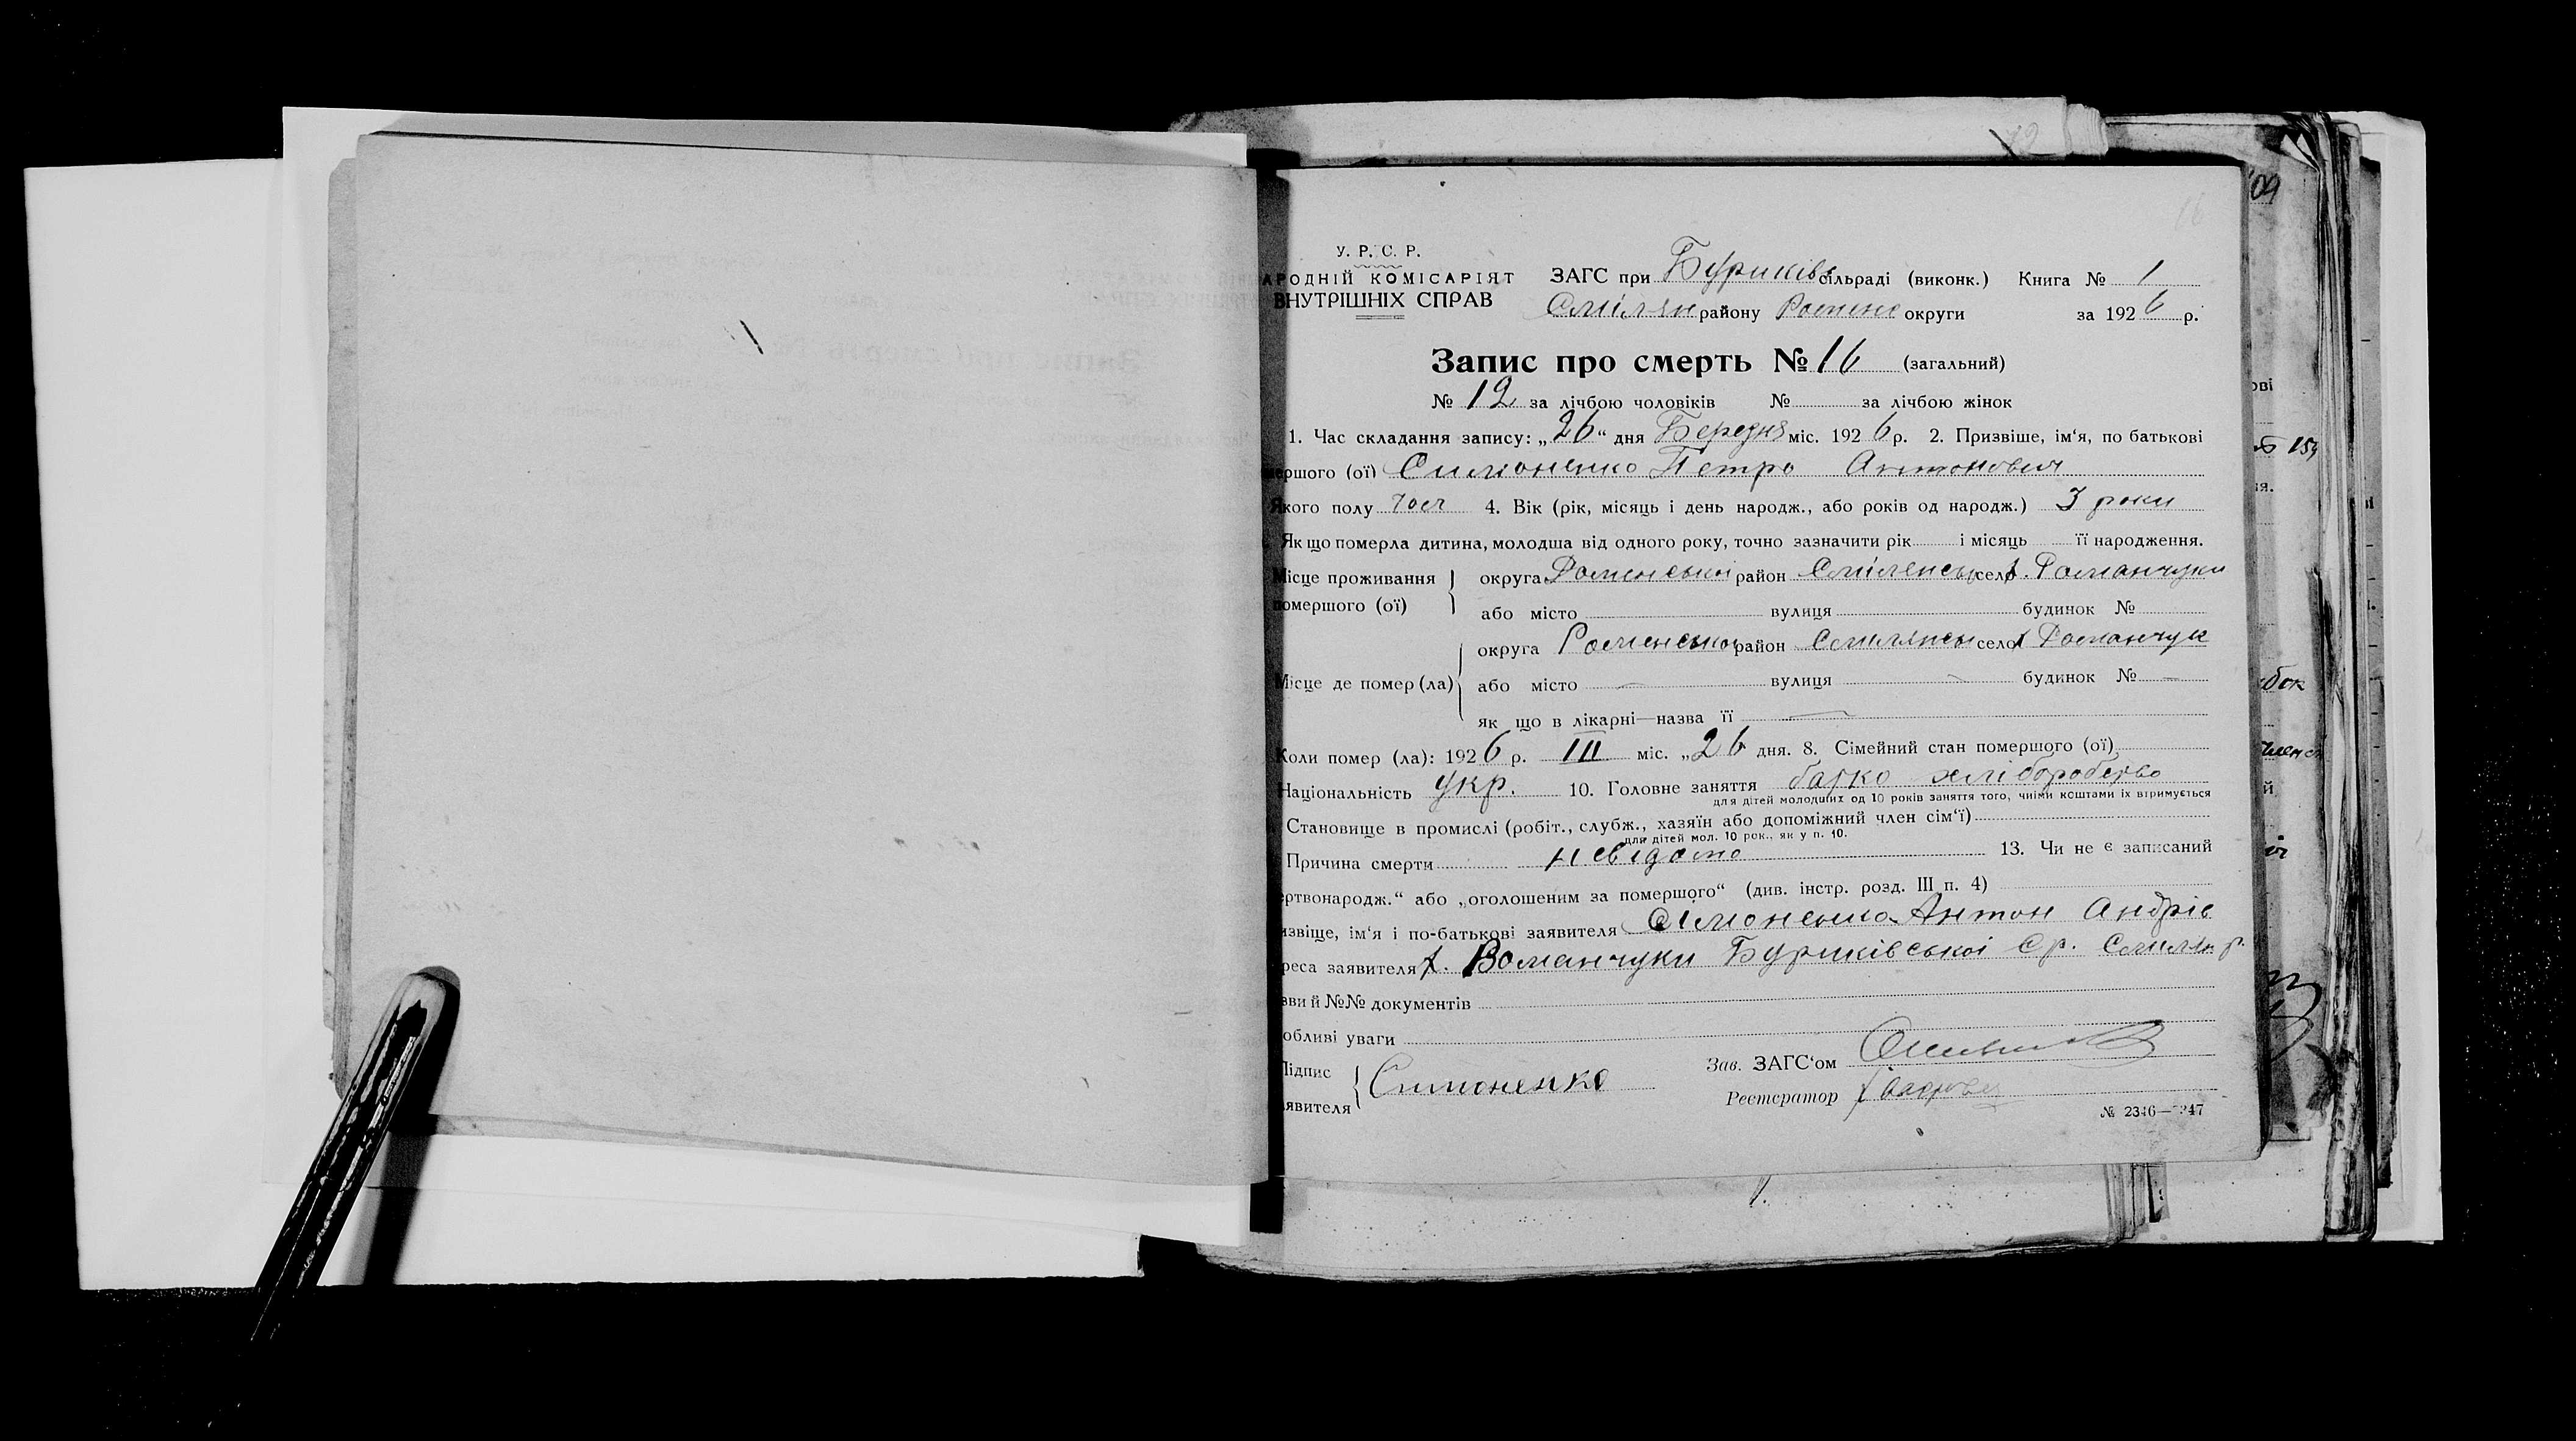 У. Р. С. Р.
АРОДНІЙ КОМІСАРІЯТ ЗАГС при Буриківс сільраді (виконк.) Книга № 1
ВНУТРІШНІХ СПРАВ Смілян району Роменс округи за 1926 р.
Запис про смерть № 16 (загальний)
№ 12 за лічбою чоловіків № за лічбою жінок
1. Час складання запису: „26“ дня Березня міс. 1926 р. 2. Призвіше, ім‘я, по батькові
ершого (ої) Симоненко Петро Антонович
Якого полу чол 4. Вік (рік, місяць і день народж., або років од народж.) 3 роки
Як що померла дитина, молодша від одного року, точно зазначити рік і місяць її народження.
Місце проживання округа Роменської район Смілянськ село х. Романчуки
помершого (ої) або місто вулиця будинок №
округа Роменської район Смилянськ село х Романчук
Місце де помер (ла) або місто — вулиця — будинок № —
як що в лікарні—назва її —
Коли помер (ла): 1926 р. III міс. „26 дня. 8. Сімейний стан помершого (ої)
Національність укр. 10. Головне заняття батко хліборобство
для дітей молодших од 10 років заняття того, чиїми коштами їх втримується
Становище в промислі (робіт., служб., хазяїн або допоміжний член сім‘ї)
для дітей мол. 10 рок., як у п. 10.
Причина смерти невідомо 13. Чи не є записаний
ертвонародж.“ або „оголошеним за помершого“ (див. інстр. розд. III п. 4)
ізвіще, ім‘я і по-батькові заявителя Сімоненко Антон Андріє
реса заявителя х. Романчуки Буриківської ср. Смілян р.
зви й №№ документів
обливі уваги
Підпис Симоненко Зав. ЗАГС‘ом
аявителя Реєстратор
№ 2346—